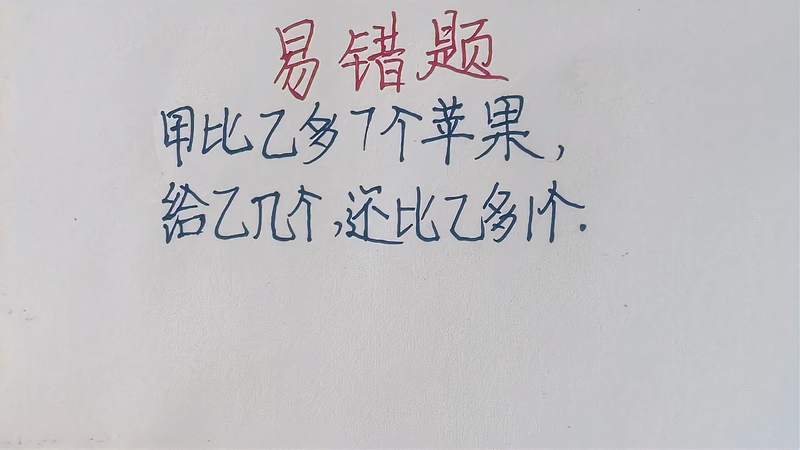 易错题
甲比乙多7个苹果,
给乙几个,还比乙多1个.